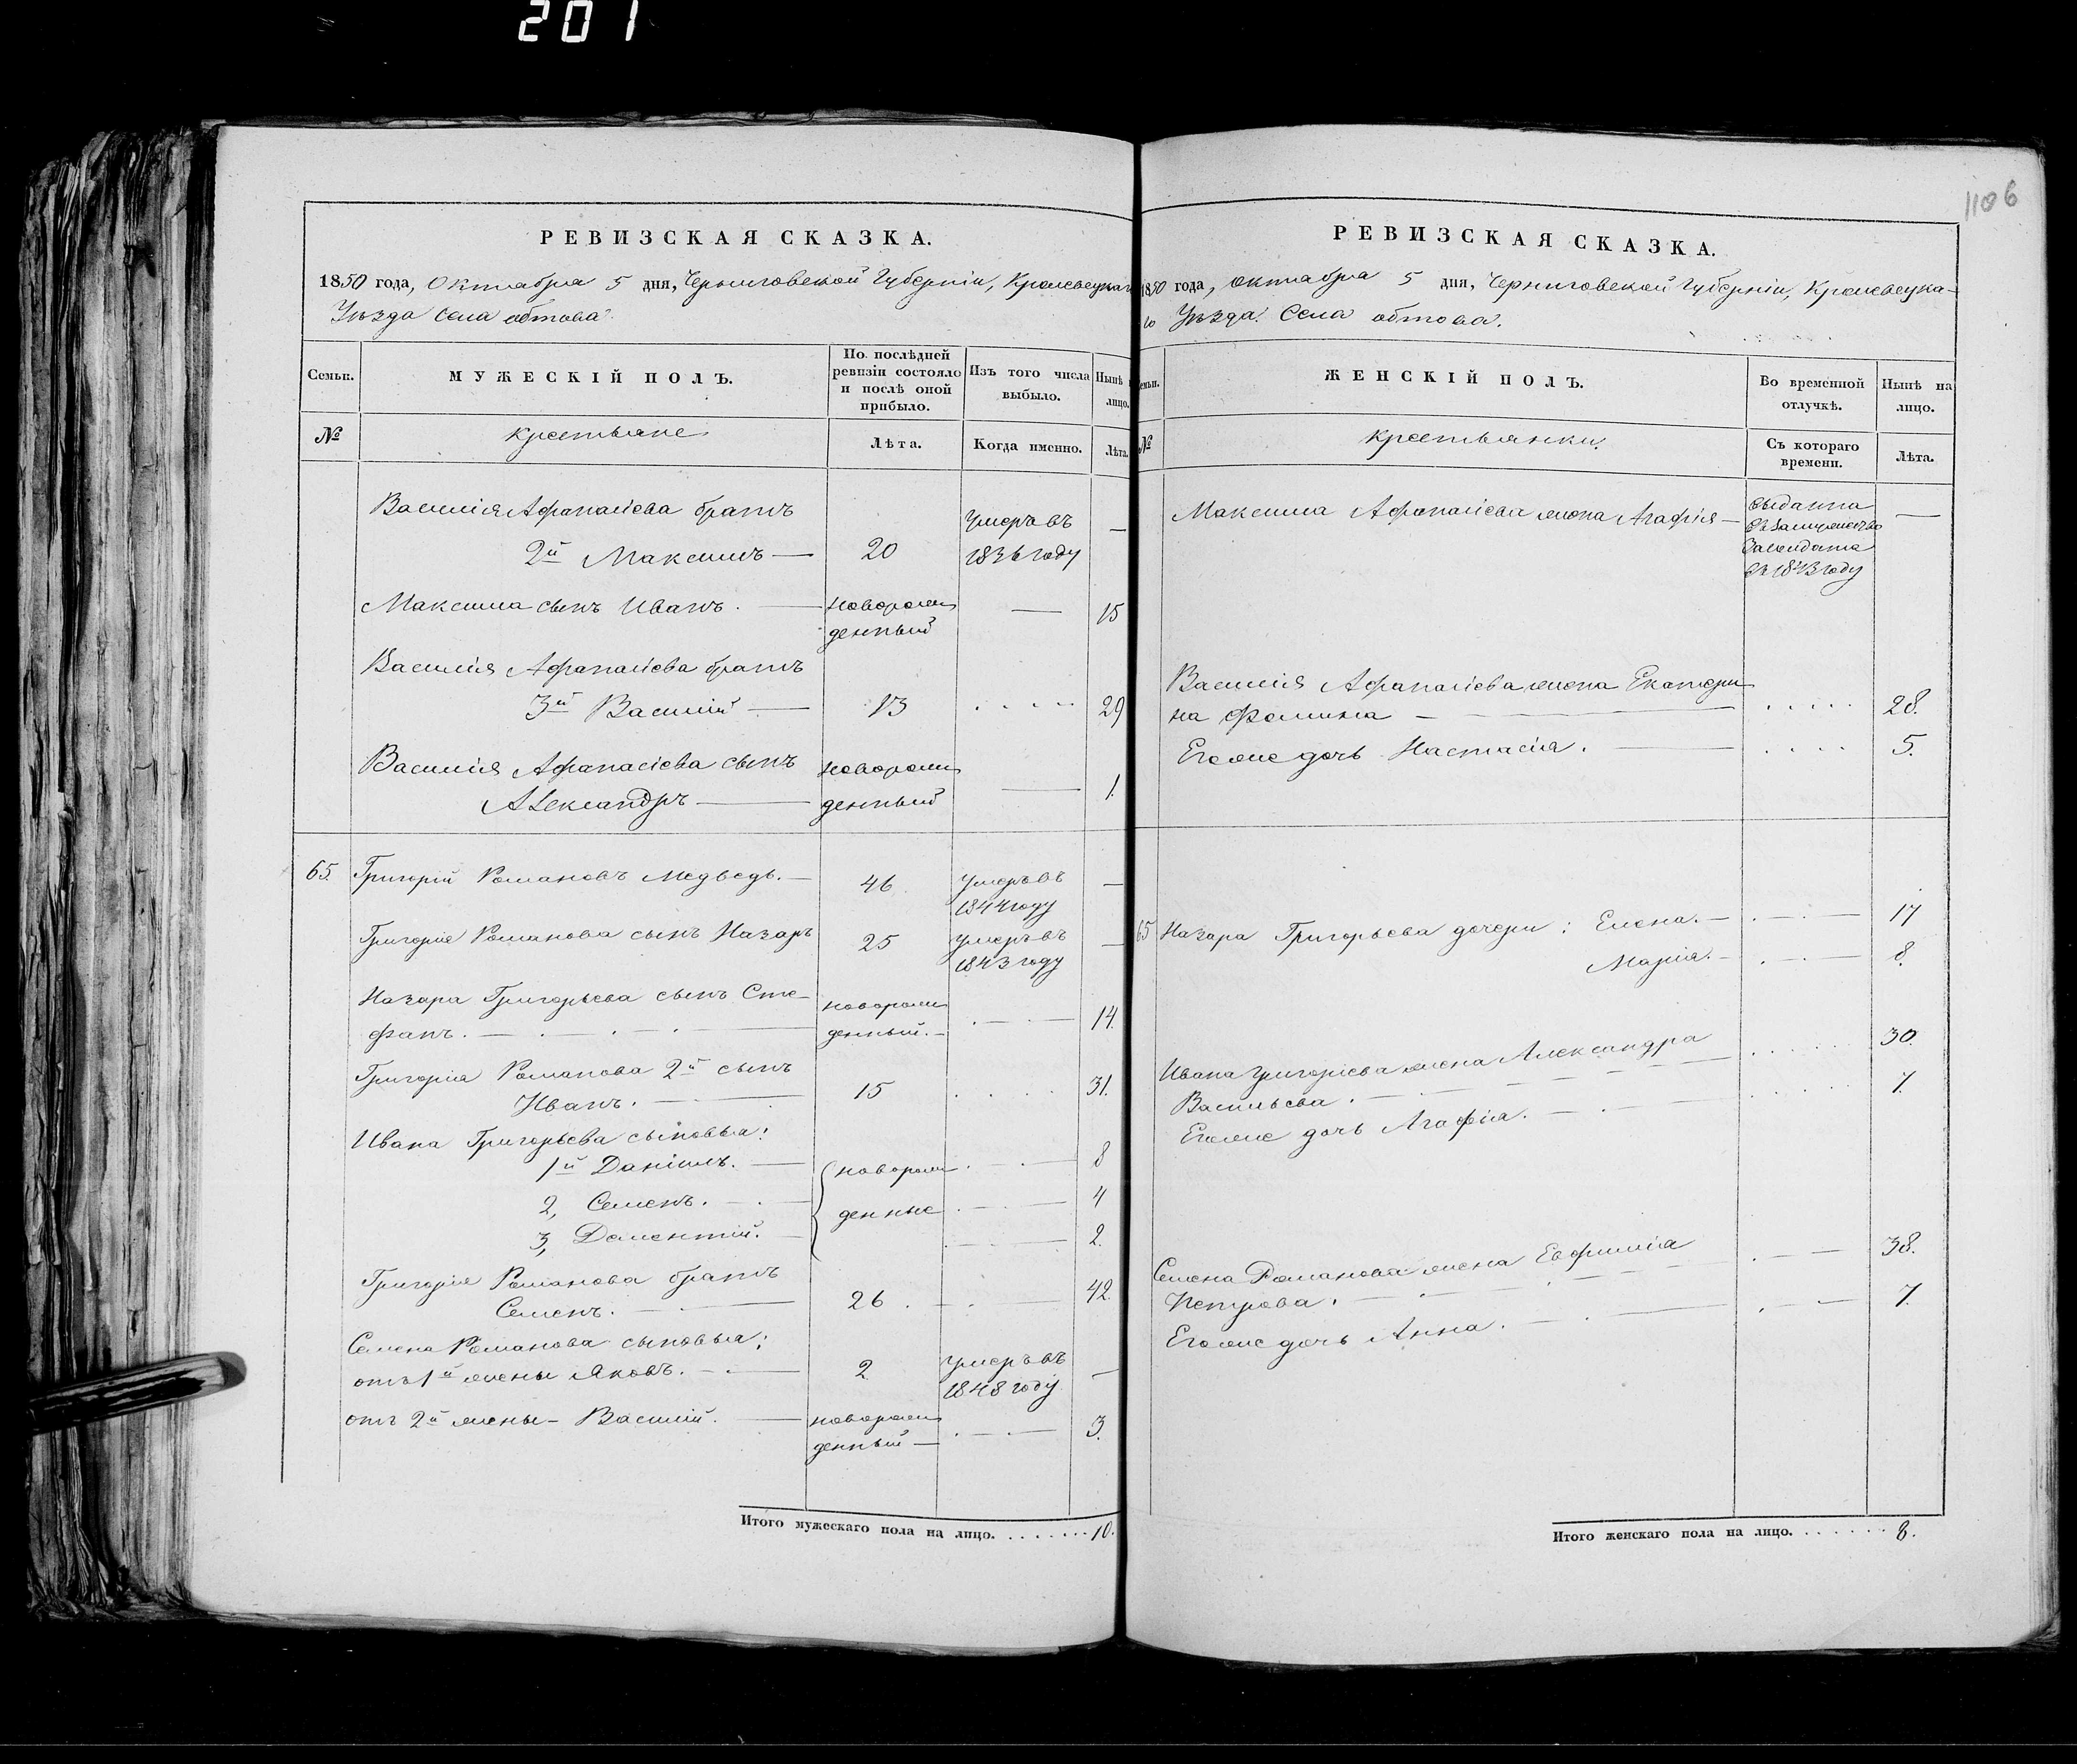 201
1106
РЕВИЗСКАЯ СКАЗКА.
1850 года, Октября 5 дня, Черниговской Губернiи, Кролевецкаго
Уѣзда Села обтова.
Семьи.
МУЖЕСКIЙ ПОЛЪ.
По послѣдней
ревизiи состояло
и послѣ оной
прибыло.
Изъ того числа
выбыло.
Нынѣ
лицо.
№
крестьяне
Лѣта.
Когда именно.
Лѣта.
Василiя Афанасiева братъ
умеръ въ
—
2й Максимъ —
20
1836 году
Максима сынъ Иванъ. —
новорож
— 15
денный
Василiя Афанасiева братъ
3й Василiй —
13
. . . .
29
Василiя Афанасiева сынъ
новорож
Александръ —
денный
— 1.
65. Григорiй Романовъ Медведь. —
46
умеръ въ
—
1844 году
Григорiя Романова сынъ Назаръ
25
умеръ въ
—
1843 году
Назара Григорьева сынъ Сте-
новорож
фанъ. —
денный. —
— 14.
Григорiя Романова 2й сынъ
Иванъ. —
15
. . . .
31.
Ивана Григорьева сыновья:
1й Данiилъ. —
новорож
— 8
2, Семенъ. —
денные
— 4
3, Дементiй. —
— 2.
Григорiя Романова братъ
Семенъ. —
26
— 42.
Семена Романова сыновья;
отъ 1й жены Яковъ. —
2
умеръ въ
—
1848 году
отъ 2й жены — Василiй. —
новорож
— 3.
денный —
Итого мужескаго пола на лицо. . . . . . . . 10.
РЕВИЗСКАЯ СКАЗКА.
1850 года, октября 5 дня, Черниговской Губернiи, Кролевецка-
го Уѣзда. Села обтова.
ЖЕНСКIЙ ПОЛЪ.
Во временной
отлучкѣ.
Нынѣ на
лицо.
№
крестьянки.
Съ котораго
времени.
Лѣта.
Максима Афанасiева жена Агафiя —
выданна
—
въ замужество
за солдата
въ 1843 году
Василiя Афанасiева жена Екатери
на Фомина —
. . . . .
28.
Его же дочь Настасiя. —
. . . .
5.
65 Назара Григорьева дочери: Елена. —
— 17
Марiя. —
— 8.
Ивана Григорiева жена Александра
30.
Васильева. —
. . . . .
Его же дочь Агафiя. —
. . . . .
7.
Семена Романова жена Евфимiя
— 38.
Петрова. —
Его же дочь Анна. —
— 7.
Итого женскаго пола на лицо. . . . . . . 8.